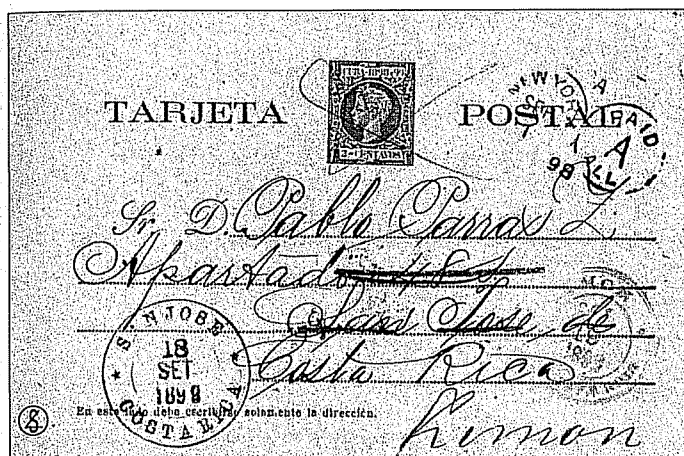 CUBA 1898 Y 99
2 CENTAVOS
TARJETA POSTAL
NEW YORK
1
98
PAID
A
ALL
Sr. D. Pablo Parras Z.
Apartado
San Jose de
Costa Rica
Limon
SAN JOSE
18
SET
1898
COSTA RICA
En este lado debe escribirse solamente la dirección.